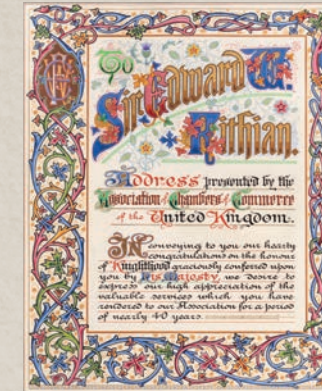 To
Sir Edward W.
Fithian.
Address presented by the
Association of Chambers of Commerce
of the United Kingdom.
In conveying to you our hearty
congratulations on the honour
of Knighthood graciously conferred upon
you by His Majesty, we desire to
express our high appreciation of the
valuable services which you have
rendered to our Association for a period
of nearly 40 years.